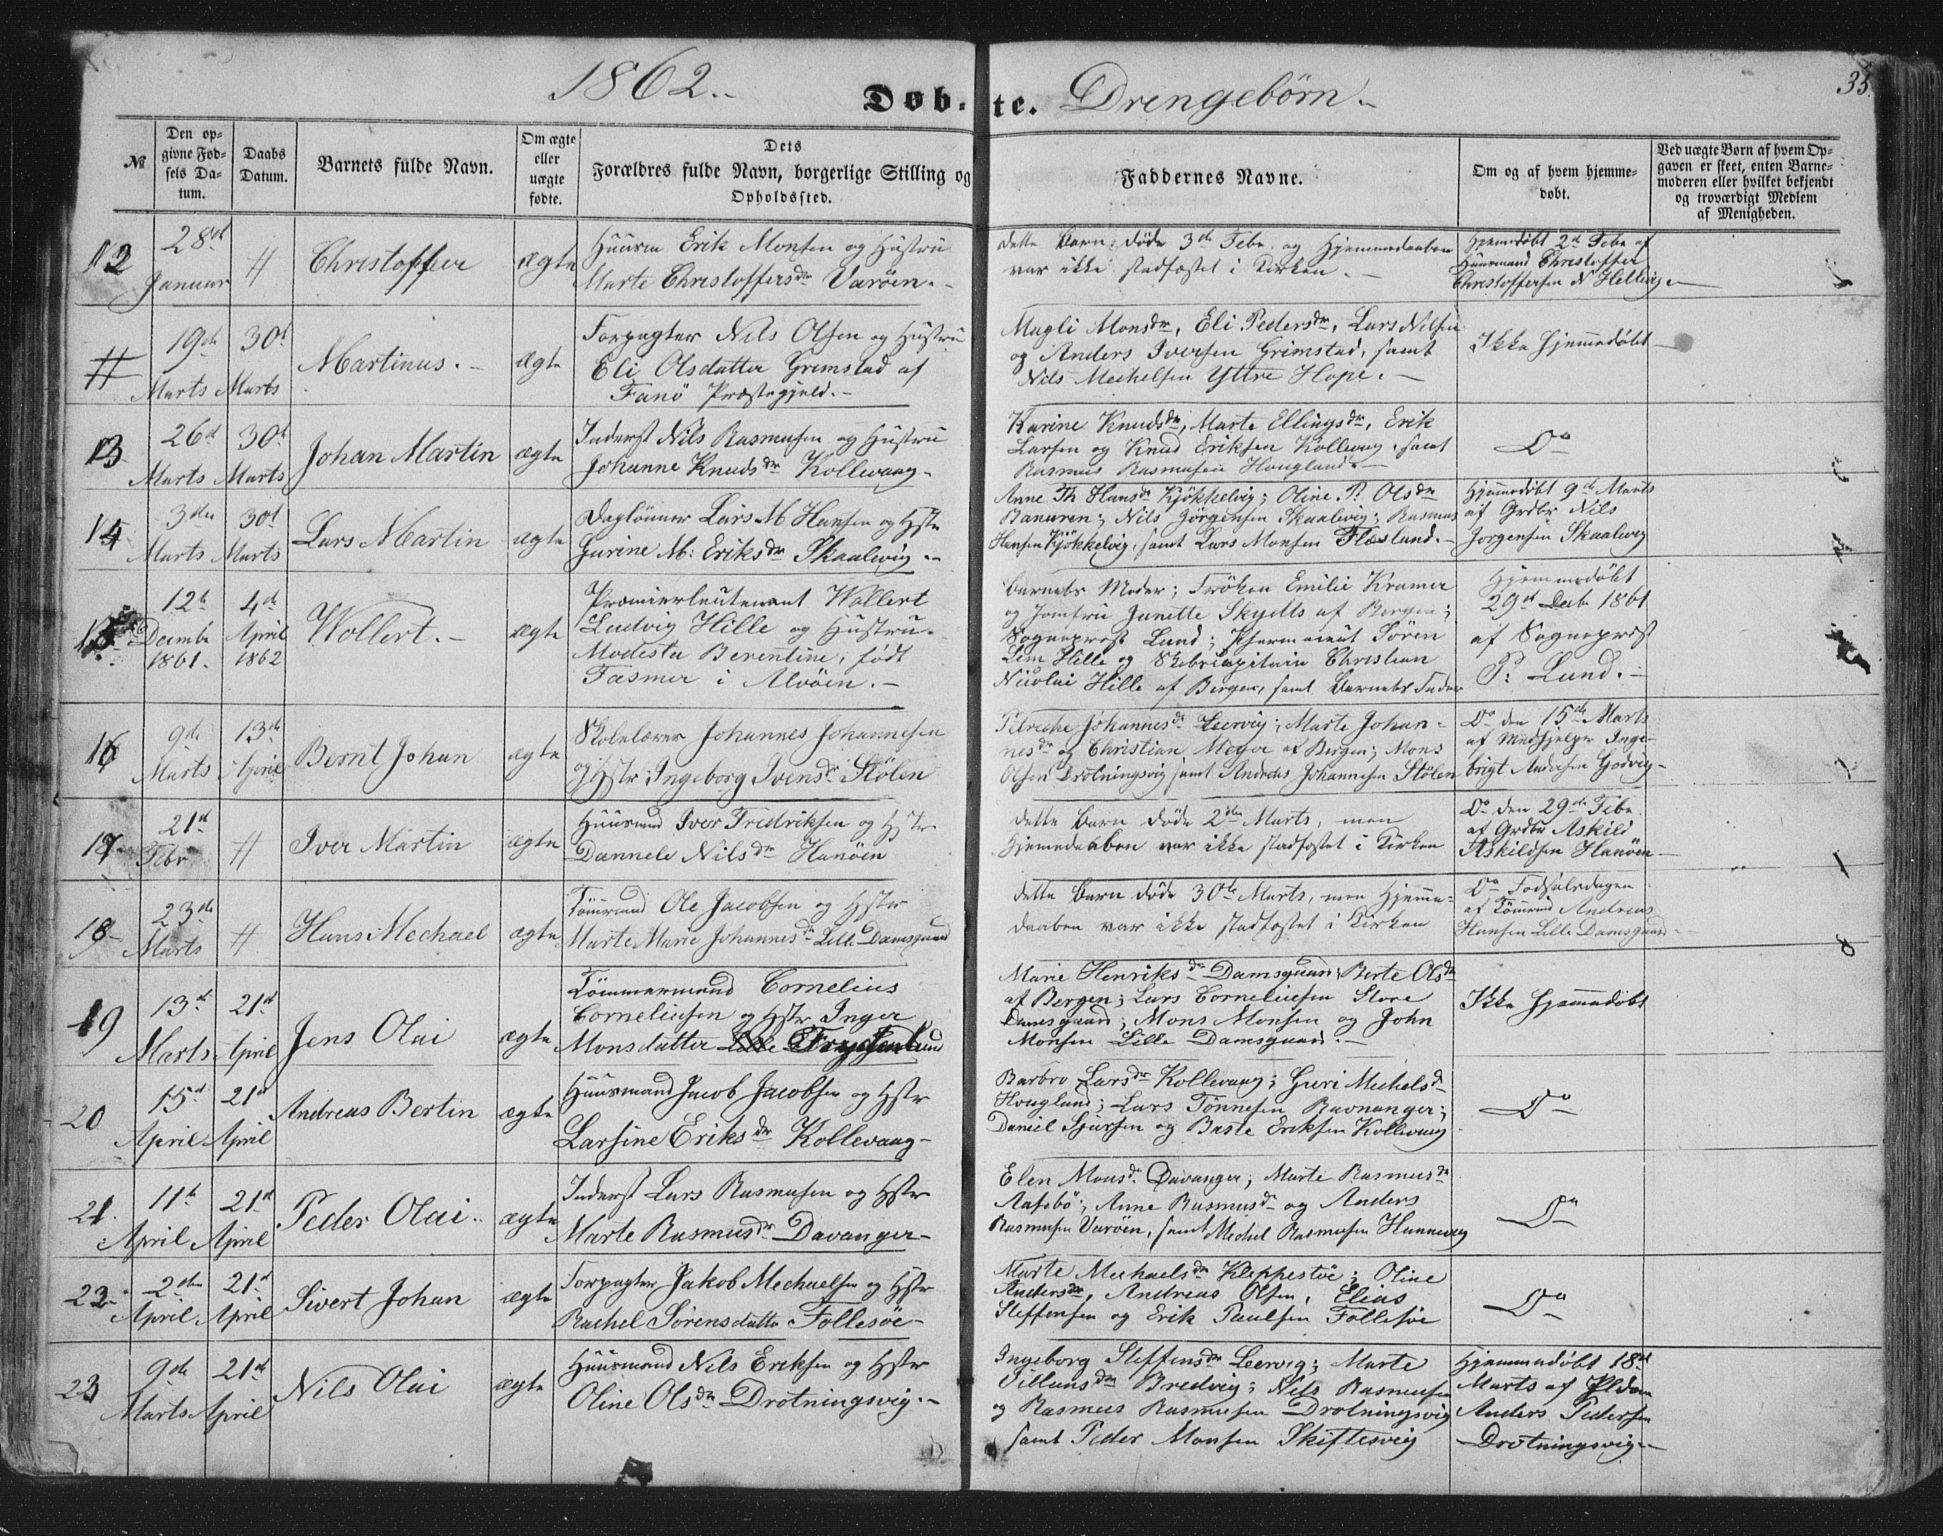 1862.
Døb-te. Drengebørn.
35.
№
Den opgivne Fødsels Datum.
Daabs Datum.
Barnets fulde Navn.
Om ægte eller uægte fødte.
Dets Forældres fulde Navn, borgerlige Stilling og Opholdssted.
Faddernes Navne.
Om og af hvem hjemmedøbt.
Ved uægte Børn af hvem Opgaven er skeet, enten Barnemoderen eller hvilket bekjendt og troværdigt Medlem af Menigheden.
12
28de
Januar
#
Christoffer
ægte
Huusm Erik Monsen og Hustru
Marte Christoffersdr Varöen.
dette Barn døde 3de Febr. og Hjemmedaaben
var ikke stadfæstet i Kirken.
Hjemmedøbt 2d Febr af
Huusmand Christoffer
Christoffersen N Hellevig
#
19de
Marts
30t
Marts
Martinus.
ægte
Forpagter Nils Olsen og Hustru
Eli Olsdatter Grimstad af
Fanö Præstegjeld.
Magli Monsdr, Eli Pedersdr, Lars Nilsen
og Anders Iversen Grimstad, samt
Nils Mechelsen Yttre Hope.
Ikke hjemmedøbt
13
26d
Marts
30t
Marts
Johan Martin
ægte
Inderst Nils Rasmusen og Hustru
Johanne Knudsdr Kollevaag
Karine Knudsdr, Marte Ellingsdr, Erik
Larsen og Knud Eriksen Kollevaag, samt
Rasmus Rasmusen Hougland.
Do
14
3den
Marts
30t
Marts
Lars Martin
ægte
Daglönner Lars M Hansen og Hstr
Gurine M: Eriksdr Skaalevig.
Anne Th Hansdr Kjökkelvig; Oline P. Olsdr
Banuren; Nils Jörgensen Skaalevig; Rasmus
Hansen Kjökkelvig, samt Lars Monsen Flæsland.
Hjemmedøbt 9de Marts
af Grdbr Nils
Jorgensen Skaalevig
15
12te
Decmb
1861.
4de
April
1862
Wollert.
ægte
Præmierleutenant Wollert
Ludvig Hille og Hustru
Modesta Berentine, født
Fasmer i Alvöen.
Barnets Moder; Fröken Emilie Kramer
og Jomfru Janette Skydts af Bergen;
Sogneprest Lund; Sören
Lem Hille og Skibscapitain Christian
Nicolai Hille af Bergen, samt Barnets Fader
Hjemmedøbt
29de Decbr 1861
af Sogneprest
P. Lund.
16
9de
Marts
13de
April
Bernt Johan
ægte
Skolelærer Johannes Johannesen
og Hstr Ingeborg Ivensdr Stölen
Petreche Johannesdr Leervig; Marte Johan-
nesdr og Christian Meyer af Bergen; Mons
Olsen Drotningsvig samt Andreas Johannesen Stölen
Do den 15de Marts
af Medhjelper Inge-
brigt Andersen Godvig
17
21de
Febr
#
Iver Martin
ægte
Huusmand Iver Fredriksen og Hstr
Dannele Nilsdr Hanöen
dette Barn døde 2den Marts, men
Hjemedaaben var ikke stadfæstet i Kirken
Do den 29de Febr.
af Grdbr Askild
Askildsen Hanöen
18
23de
Marts
#
Hans Mechael
ægte
Tömrmand Ole Jacobsen og Hstr
Marte Marie Johannesdr Lille Damsgaard
dette Barn døde 30te Marts, men Hjemme-
daaben var ikke stadfæstet i Kirken
Do Fødselsdagen
af Tömrmd Andreas
Hansen Lille Damsgaard
19
13de
Marts
21de
April
Jens Olai
ægte
Tömmermand Cornelius
Corneliusen og Hstr Inger
Monsdatter
Marie Henriksdr Damsgaard; Berte Olsdr
af Bergen; Lars Corneliusen Store
Damsgaard; Mons Monsen og John
Monsen Lille Damsgaard.
Ikke hjemmedøbt
20
15d
April
21de
April
Andreas Bertin
ægte
Huusmand Jacob Jacobsen og Hstr
Larsine Eriksdr Kollevaag
Barbro Larsdr Kollevaag; Guri Mechelsdr
Hougland; Lars Tönnesen Ravnanger;
Daniel Sjursen og Baste Eriksen Kollevaag
Do
21.
11te
April
21de
April
Peder Olai.
ægte
Inderst Lars Rasmusen og Hstr
Marte Rasmusdr Davanger
Elen Monsdr Davanger; Marte Rasmusdr
Aasebö; Anne Rasmusdr og Anders
Rasmusen Varöen, samt Mechel Rasmusen Hanevig
Do
22
2den
April
21de
April
Sivert Johan
ægte
Forpagter Jakob Mechaelsen og Hstr
Rachel Sörensdatter Follesöe
Marte Mechaelsdr Kleppestöe; Oline
Andersdr, Andreas Olsen, Elias
Steffensen og Erik Paulsen Follesöe
Do
23
9de
Marts
21de
April
Nils Olai
ægte
Huusmand Nils Eriksen og Hstr
Oline Olsdr Drotningsvig.
Ingeborg Steffensdr Leervig; Marte
Villumsdr Bredvig; Nils Rasmusen
og Rasmus Rasmusen Drotningsvig
samt Peder Monsen Skiftesvig
Hjemmedøbt 18de
Marts af
Anders Pedersen
Drotningsvig